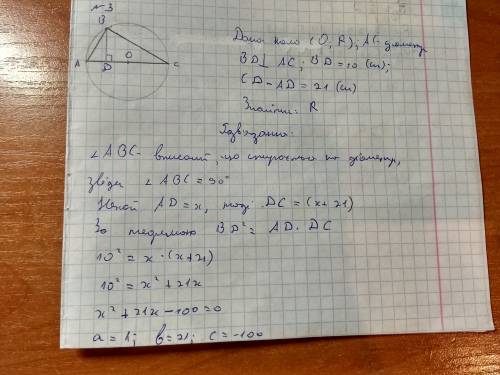 №3
B
A
D
O
C
Дано коло (O, R); AC-діаметр
BD⊥ AC; BD = 10 (см);
CD - AD = 21 (см)
Знайти: R
Розв'язання:
∠ABC - вписаний, що спирається на діаметр,
звідси ∠ABC = 90°
Нехай AD = x, тоді DC = (x + 21)
За теоремою BD² = AD · DC
10² = x · (x + 21)
10² = x² + 21x
x² + 21x - 100 = 0
a = 1; b = 21; c = -100